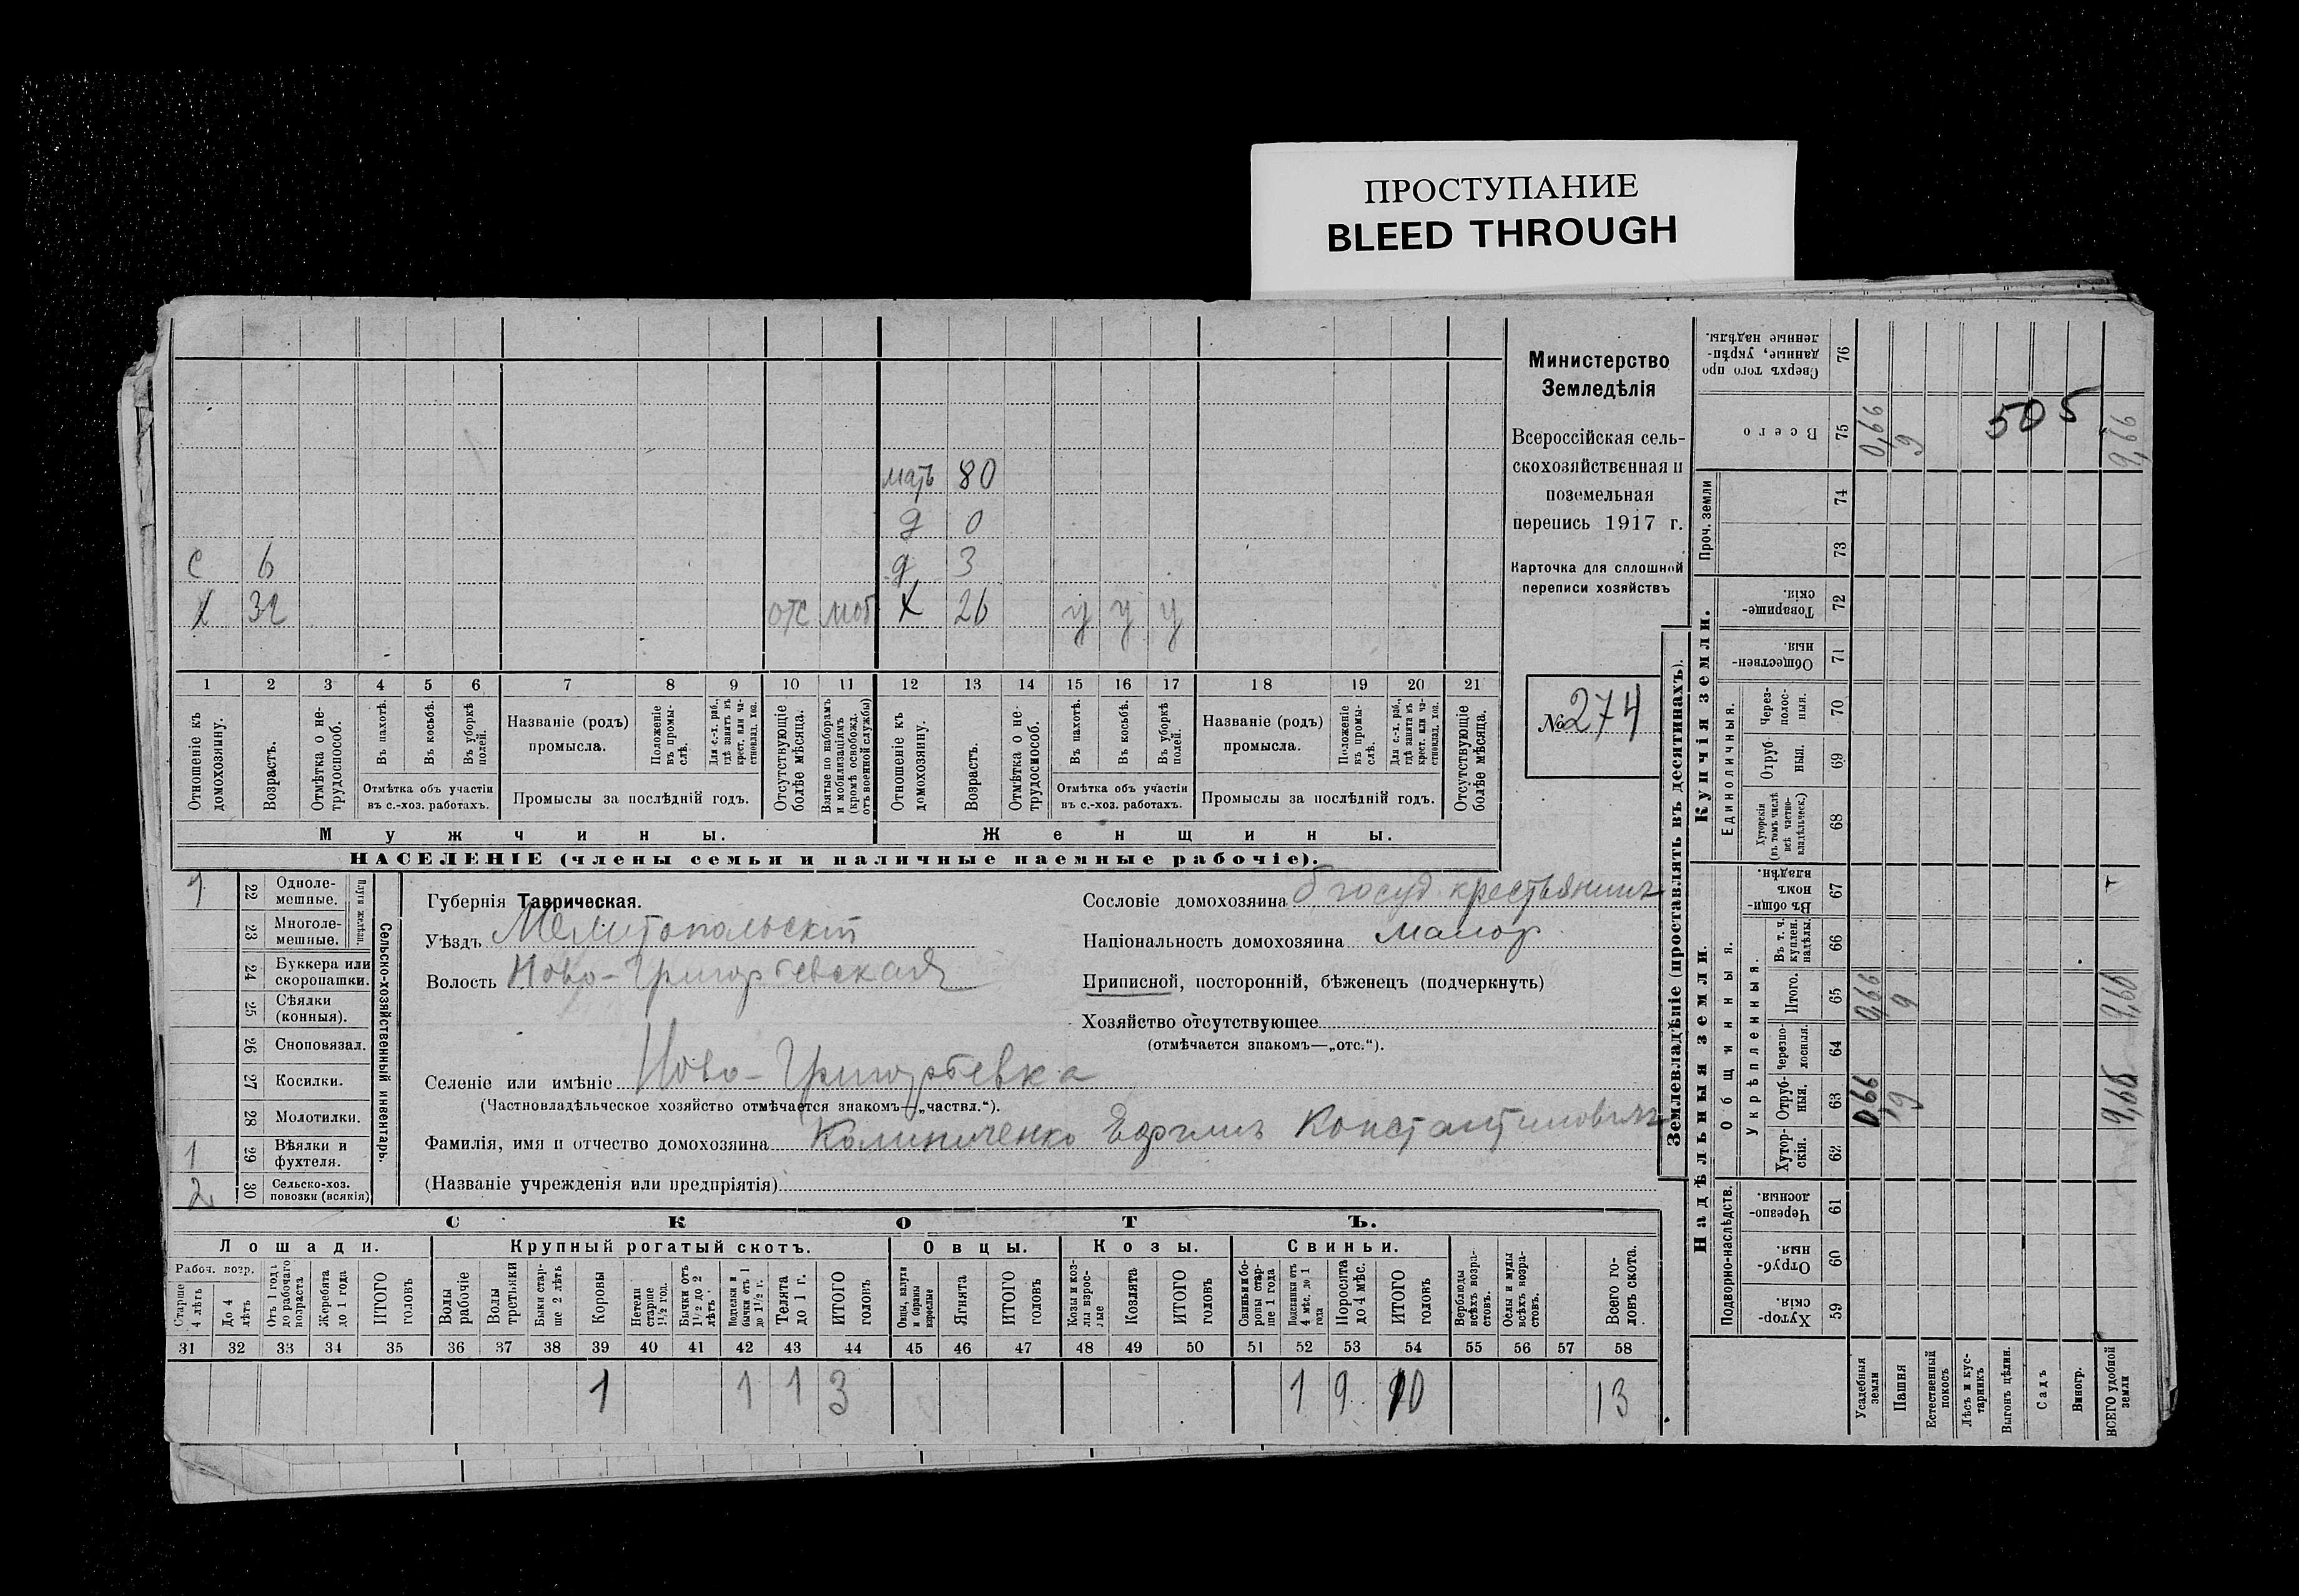 ПРОСТУПАНИЕ
BLEED THROUGH
Министерство
Земледѣлія
Всероссійская сель-
скохозяйственная и
поземельная
перепись 1917 г.
Карточка для сплошной
переписи хозяйствъ
№ 274
мать 80
д 0
с 6 д 3
х 32 отс моб х 26 у у у
1 2 3 4 5 6 7 8 9 10 11 12 13 14 15 16 17 18 19 20 21
Отношеніе къ домохозяину.
Возрастъ.
Отмѣтка о не-трудоспособ.
Въ пахотѣ.
Въ косьбѣ.
Въ уборкѣ полей.
Отмѣтка объ участіи въ с.-хоз. работахъ.
Названіе (родъ) промысла.
Положеніе въ промы-слѣ.
Для с.-х. раб., гдѣ занятъ въ крест. или ча-стновлад. хоз.
Промыслы за послѣдній годъ.
Отсутствующіе болѣе мѣсяца.
Взятые по наборамъ и мобилизаціямъ (кромѣ освобожд. отъ военной службы)
Отношеніе къ домохозяину.
Возрастъ.
Отмѣтка о не-трудоспособ.
Въ пахотѣ.
Въ косьбѣ.
Въ уборкѣ полей.
Отмѣтка объ участіи въ с.-хоз. работахъ.
Названіе (родъ) промысла.
Положеніе въ промы-слѣ.
Для с.-х. раб., гдѣ занята въ крест. или ча-стновлад. хоз.
Промыслы за послѣдній годъ.
Отсутствующіе болѣе мѣсяца.
Мужчины. Женщины.
НАСЕЛЕНІЕ (члены семьи и наличные наемные рабочіе).
Сельско-хозяйственный инвентарь.
Плуги желѣзн.
1 22 Одноле-мешные.
23 Многоле-мешные.
24 Буккера или скоропашки.
25 Сѣялки (конныя).
26 Сноповязал.
27 Косилки.
28 Молотилки.
1 29 Вѣялки и фухтеля.
2 30 Сельско-хоз. повозки (всякія)
Губернія Таврическая.
Уѣздъ Мелитопольскій
Волость Ново-Григорьевская
Сословіе домохозяина б госуд крестьянинъ
Національность домохозяина малор
Приписной, посторонній, бѣженецъ (подчеркнуть)
Хозяйство отсутствующее
(отмѣчается знакомъ—„отс.“).
Селеніе или имѣніе Ново-Григорьевка
(Частновладѣльческое хозяйство отмѣчается знакомъ—„частвл.“).
Фамилія, имя и отчество домохозяина Калиниченко Ефимъ Константиновичъ
(Названіе учрежденія или предпріятія)
СКОТЪ.
Лошади. Крупный рогатый скотъ. Овцы. Козы. Свиньи.
Рабоч. возр.
Старше 4 лѣтъ
До 4 лѣтъ
Отъ 1 года до рабочаго возраста
Жеребята до 1 года
ИТОГО головъ
Волы рабочіе
Волы третьяки
Быки стар-ше 2 лѣтъ
Коровы
Нетели старше 1½ год.
Бычки отъ 1½ до 2 лѣтъ
Подтелки и бычки отъ 1 до 1½ г.
Телята до 1 г.
ИТОГО головъ
Овцы, валухи и бараны взрослые
Ягнята
ИТОГО головъ
Козы и коз-лы взрос-лые
Козлята
ИТОГО головъ
Свиньи и бо-ровы стар-ше 1 года
Подсвинки отъ 4 мѣс. до 1 года
Поросята до 4 мѣс.
ИТОГО головъ
Верблюды всѣхъ возра-стовъ.
Ослы и мулы всѣхъ возра-стовъ.
Всего го-ловъ скота.
31 32 33 34 35 36 37 38 39 40 41 42 43 44 45 46 47 48 49 50 51 52 53 54 55 56 57 58
1 1 1 3 1 9 10 13
Землевладѣніе (проставлять въ десятинахъ).
Надѣльныя земли. Купчія земли.
Проч. земли
Сверхъ того про-данные, укрѣп-ленные надѣлы. 76
Всего 75 0,66 9 9,66
505
74
73
Товарище-скія. 72
Обществен-ныя. 71
Единоличныя.
Через-полос-ныя. 70
Отруб-ныя. 69
Хуторскія (въ томъ числѣ всѣ частно-владѣльческ.) 68
Общинныя.
Въ общи-номъ владѣн. 67
Укрѣпленныя.
Въ т. ч. куплен. надѣлы 66
Итого. 65 0,66 9 9,66
черезпо-лосныя. 64
Отруб-ныя. 63 0,66 9 9,66
Хутор-скія. 62
Подворно-наслѣдств.
Черезпо-лосныя. 61
Отруб-ныя. 60
Хутор-скія. 59
Усадебныя земли
Пашня
Естественный покосъ
Лѣсъ и кус-тарникъ
Выгонъ цѣлин.
Садъ
Виногр.
ВСЕГО удобной земли